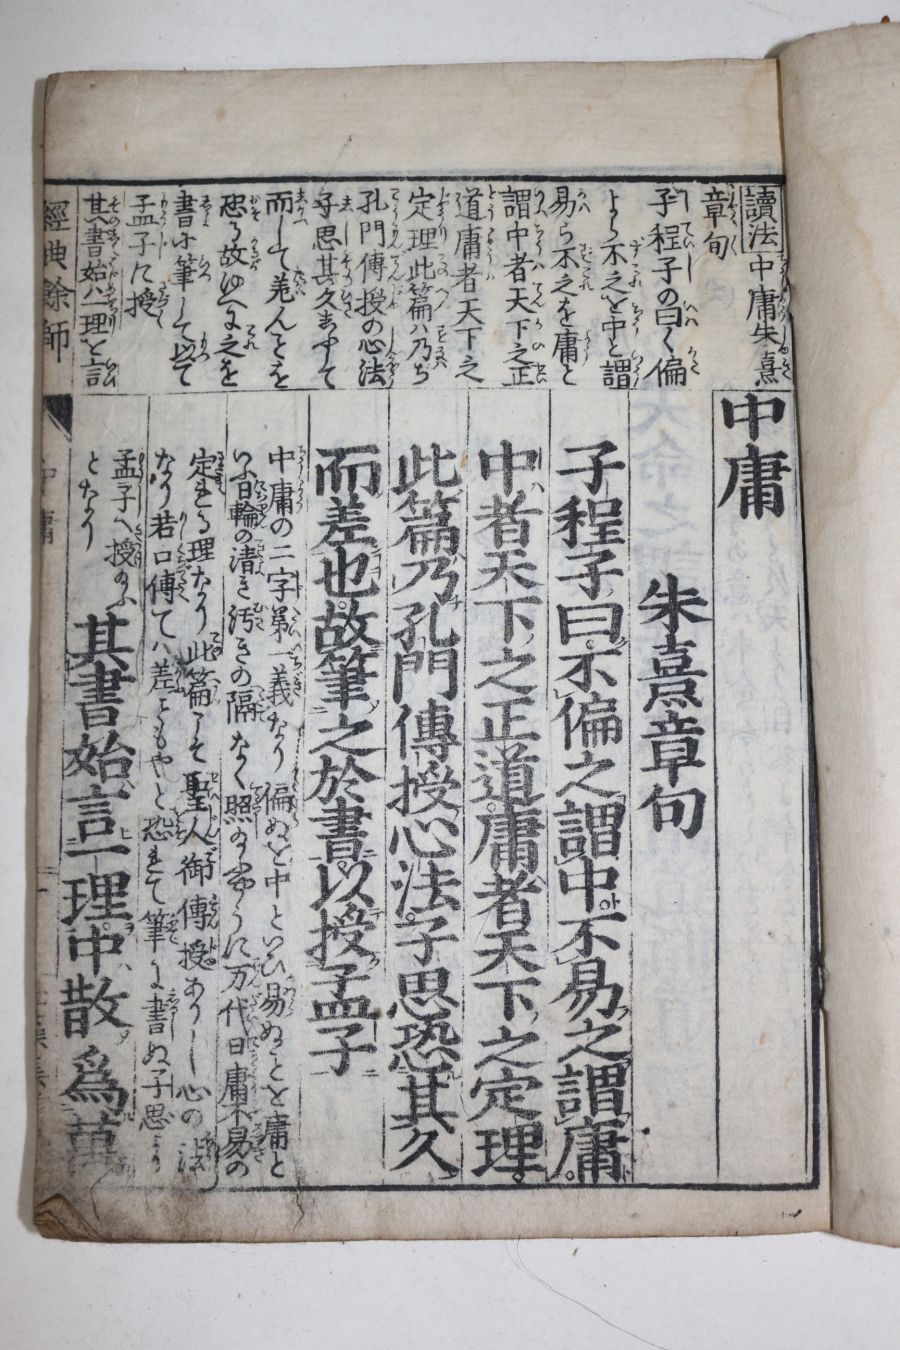 讀法 中庸朱熹
章句
子程子の曰く偏
よら不之を中と謂
易ら不之を庸と
謂中者天下之正
道庸者天下之
定理此篇ハ乃ち
孔門傳授の心法
子思其久ふして
而して差んことを
恐る故ゆへに之を
書に筆して以て
孟子に授
其書始ハ一理を言
中庸
朱熹章句
子程子曰不偏之謂中不易之謂庸
中者天下之正道庸者天下之定理
此篇乃孔門傳授心法子思恐其久
而差也故筆之於書以授孟子
中庸の二字第一義なり偏ぬを中といひ易ぬことを庸と
いふ日輪の清き汚きの隔なく照のふやうに万代日庸不易の
定まる理なり此篇こそ聖人御傳授ありし心の法
なり若口傳てハ差こともやと恐まて筆に書ぬ子思より
孟子へ授のふ
となり
其書始言一理中散爲萬
經典餘師